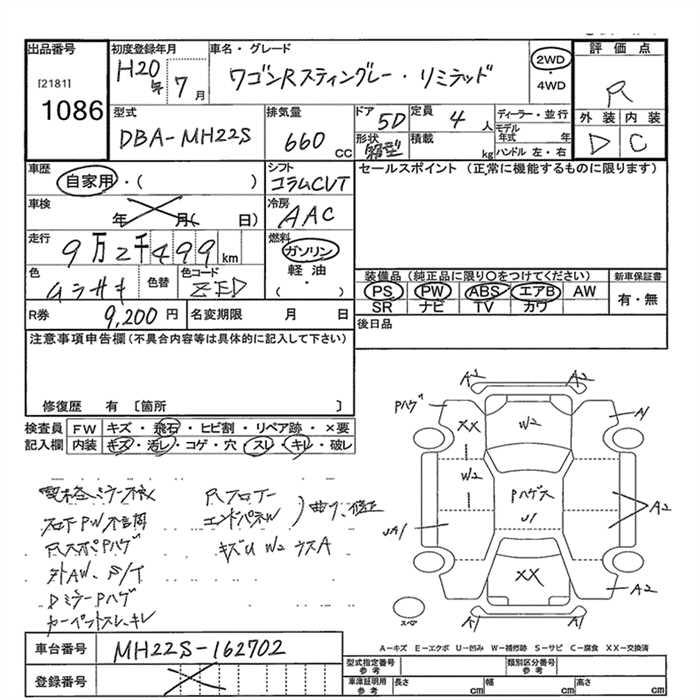 出品番号
[2181]
1086
初度登録年月
H20年 7月
車名・グレード
ワゴンRスティングレー・リミテッド
2WD
・
4WD
評価点
R
外装 内装
D C
型式
DBA-MH22S
排気量
660 CC
ドア 5D
定員 4人
形状 箱型
積載 kg
ディーラー・並行
モデル年式 年
ハンドル 左・右
車歴
自家用・( )
シフト
コラムCVT
セールスポイント (正常に機能するものに限ります)
車検
年 月( 日)
冷房
AAC
走行
9万2千499km
燃料
ガソリン
軽油
( ・ )
色
ムラサキ
色替
色コード
ZED
装備品(純正品に限り○をつけてください)
PS PW ABS エアB AW
SR ナビ TV カワ
新車保証書
有・無
R券 9,200円
名変期限 月 日
後日品
注意事項申告欄(不具合内容等は具体的に記入して下さい)
修復歴 有 〔箇所 〕
検査員記入欄
FW キズ・飛石・ヒビ割・リペア跡・×要
内装 キズ・汚レ・コゲ・穴・スレ・キレ・破レ
左右PW不良
RスポPハゲ
外AW、
DミラーPハゲ
カーペットスレ・キレ
Rフロアー
エンドパネW
曲り、修正
キズU W2 ウスA
A2 A2
Pハゲ
XX
W2
A1
W2
Pハゲス
U1
UA1
A2
XX
A2
スペア
A1 A1
A-キズ E-エクボ U-凹み W-補修跡 S-サビ C-腐食 XX-交換済
車台番号
MH22S-162702
登録番号
型式指定番号 参考
類別区分番号 参考
車庫証明用 参考
長さ cm
幅 cm
高さ cm